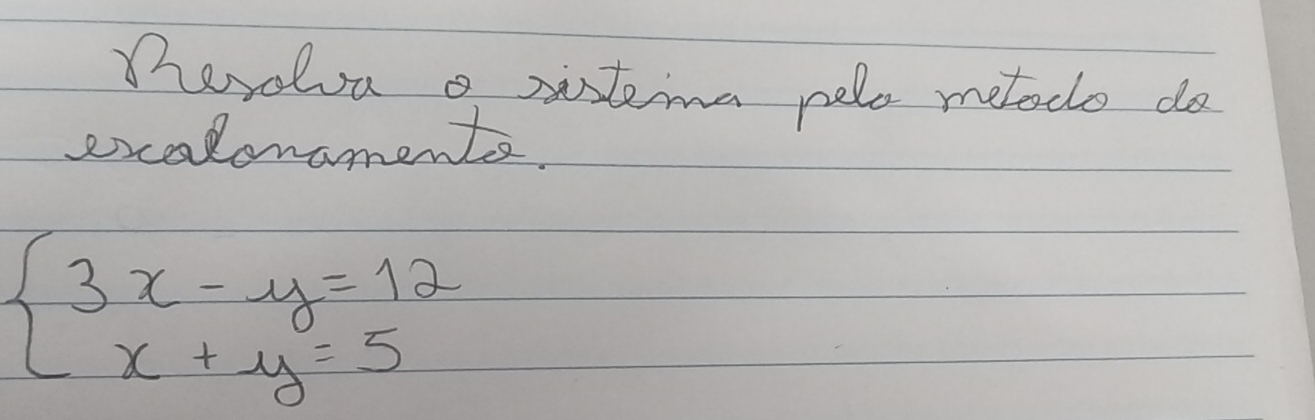 Resolva o sistema pelo metodo do
escalonamento.
3x - y = 12
x + y = 5